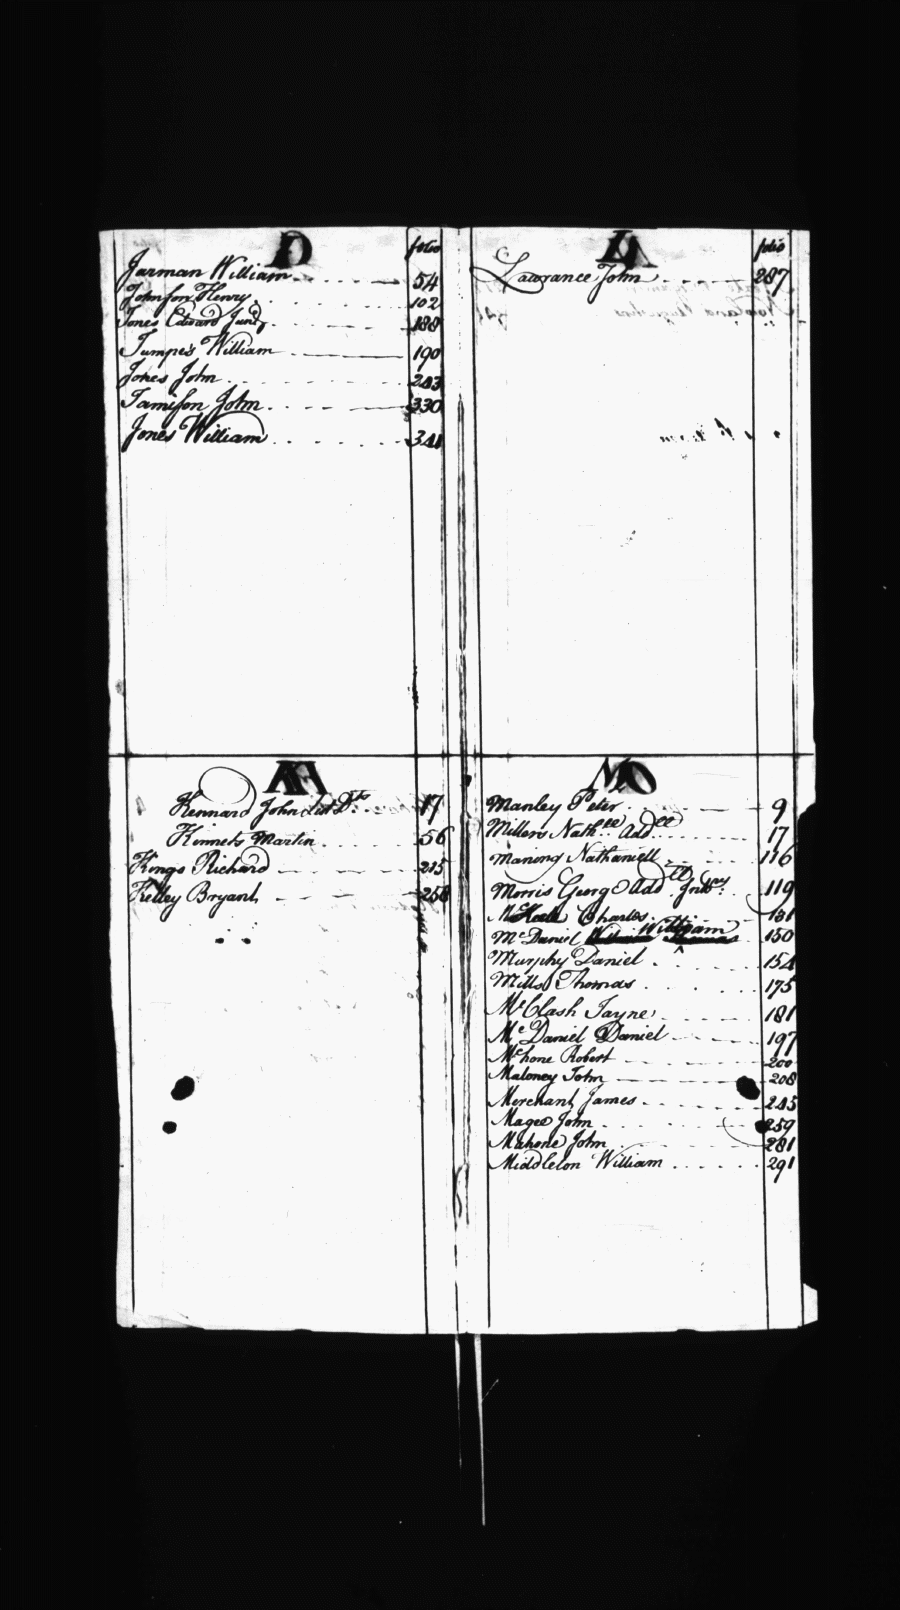 folio
Jarman William 54
Johnson Henry 102
Jones Edward Junr 188
Jumpes William 190
Jones John 243
Jamison John 330
Jones William 341
folio
Lawrance John 287
K
Kennard John 17
Kinnets Martin 56
Kings Richard 215
Kelley Bryant 258
M
Manley Peter 9
Millers Nathll Addll 17
Maning Nathaniell 116
Morris George Addll 119
Charles 131
McDaniel William 150
Murphy Daniel 154
Mills Thomas 175
McClash Jayne 181
McDaniel Daniel 197
Mchone Robert 200
Maloney John 208
Merchant James 245
Magee John 259
Mahone John 281
Middleton William 291